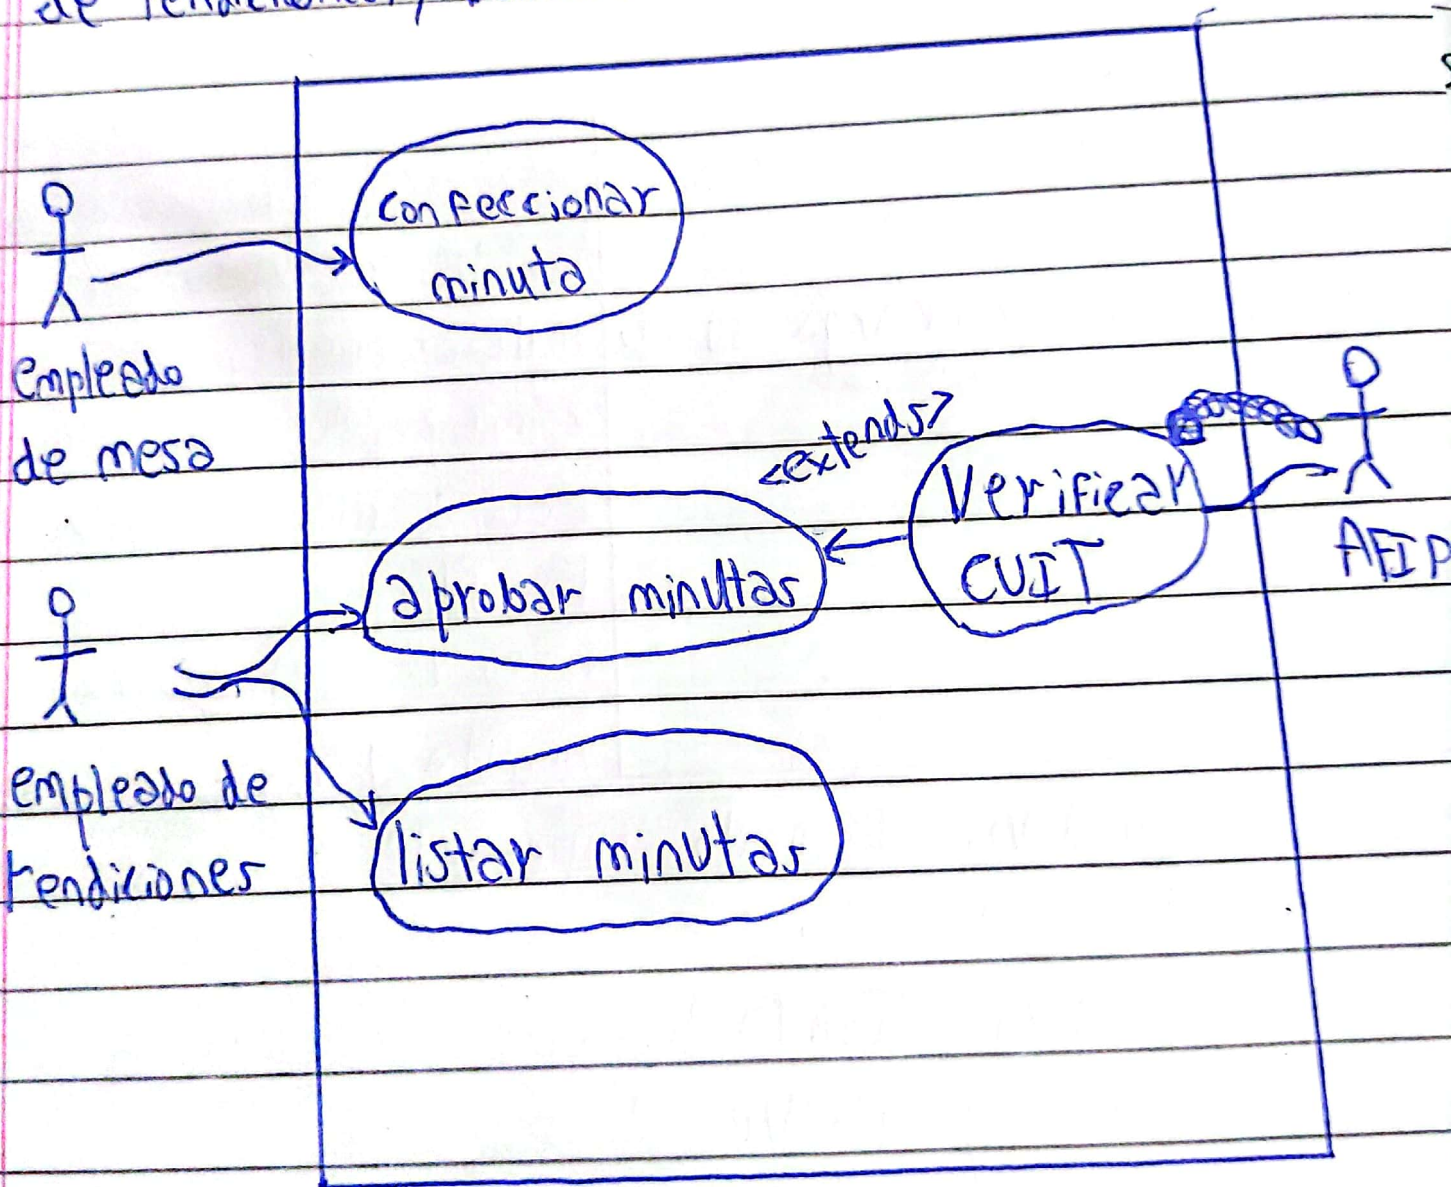 de rendiciones,
confeccionar
minuta
empleado
de mesa
<extends>
Verificar
CUIT
AFIP
aprobar minutas
empleado de
rendiciones
listar minutas